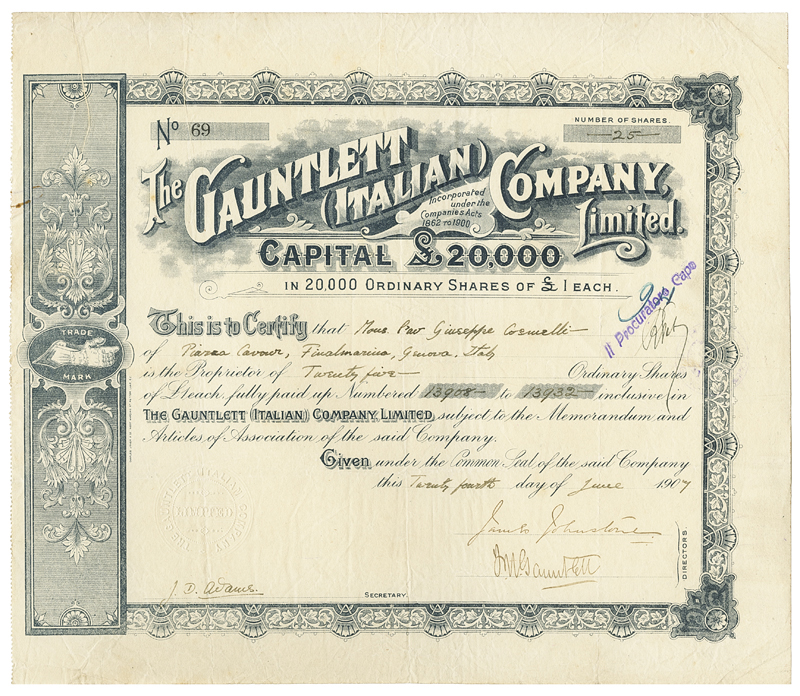 No 69
NUMBER OF SHARES.
25
The GAUNTLETT (ITALIAN) COMPANY, Limited.
Incorporated
under the
Companies Acts
1862 to 1900
CAPITAL £20,000
IN 20,000 ORDINARY SHARES OF £1 EACH.
Il Procuratore Capo
This is to Certify that Mons. Giuseppe
of Piazza Cavour, Finalmarina, Genova, Italy
is the Proprietor of Twenty five Ordinary Shares
of £1 each, fully paid up Numbered 13908 to 13932 inclusive in
THE GAUNTLETT (ITALIAN) COMPANY LIMITED, subject to the Memorandum and
Articles of Association of the said Company.
Given under the Common Seal of the said Company
this Twenty fourth day of June 1907
TRADE
MARK
THE GAUNTLETT (ITALIAN) COMPANY
LIMITED
James Johnstone
Gauntlett
DIRECTORS.
J. D. Adams.
SECRETARY.